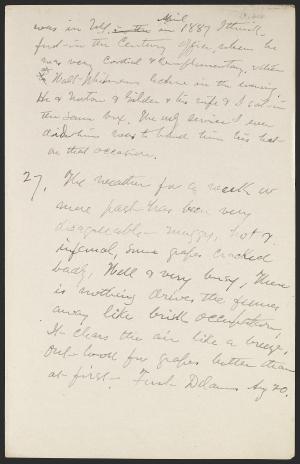 was in N.Y. in the in April 1887 I think,
first in the Century office, where he
was very cordial & complimentary, & then
at Walt Whitmans lecture in the evening.
He & Norton & Gilder & his wife & I sat in
the same box. The only service I ever
did him was to hand him his hat
on that occasion.
27. The weather for a week or
more past has been very
disagreeable - muggy, hot &
infernal, some grapes cracked
badly, Well & very busy, There
is nothing drives the fumes
away like brisk occupation,
It clears the air like a breeze,
Out-look for grapes better than
at first - First Delawares Ag 20.